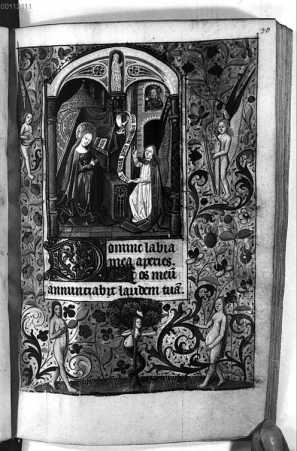 00113411
30
Domine labia
mea aperies.
os meū
annunciabit laudem tuā.